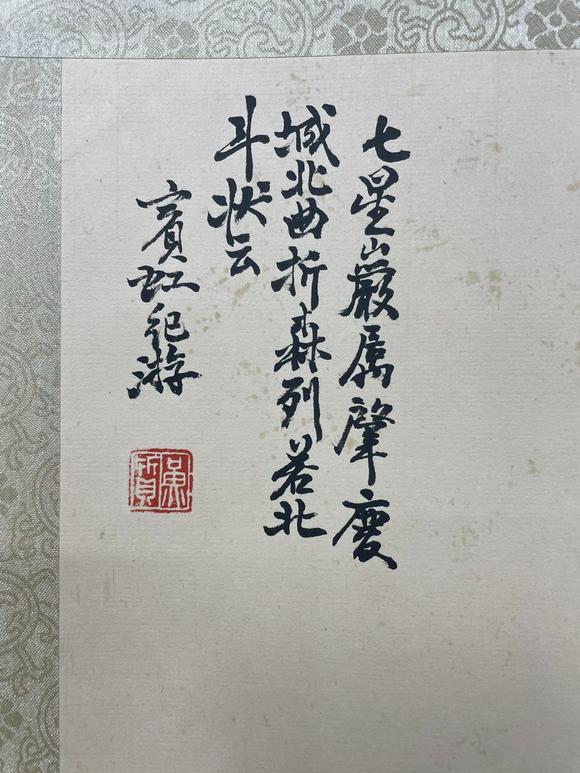 七星巖属肇慶
城北曲折森列若北
斗状云
賓虹紀游
黄質